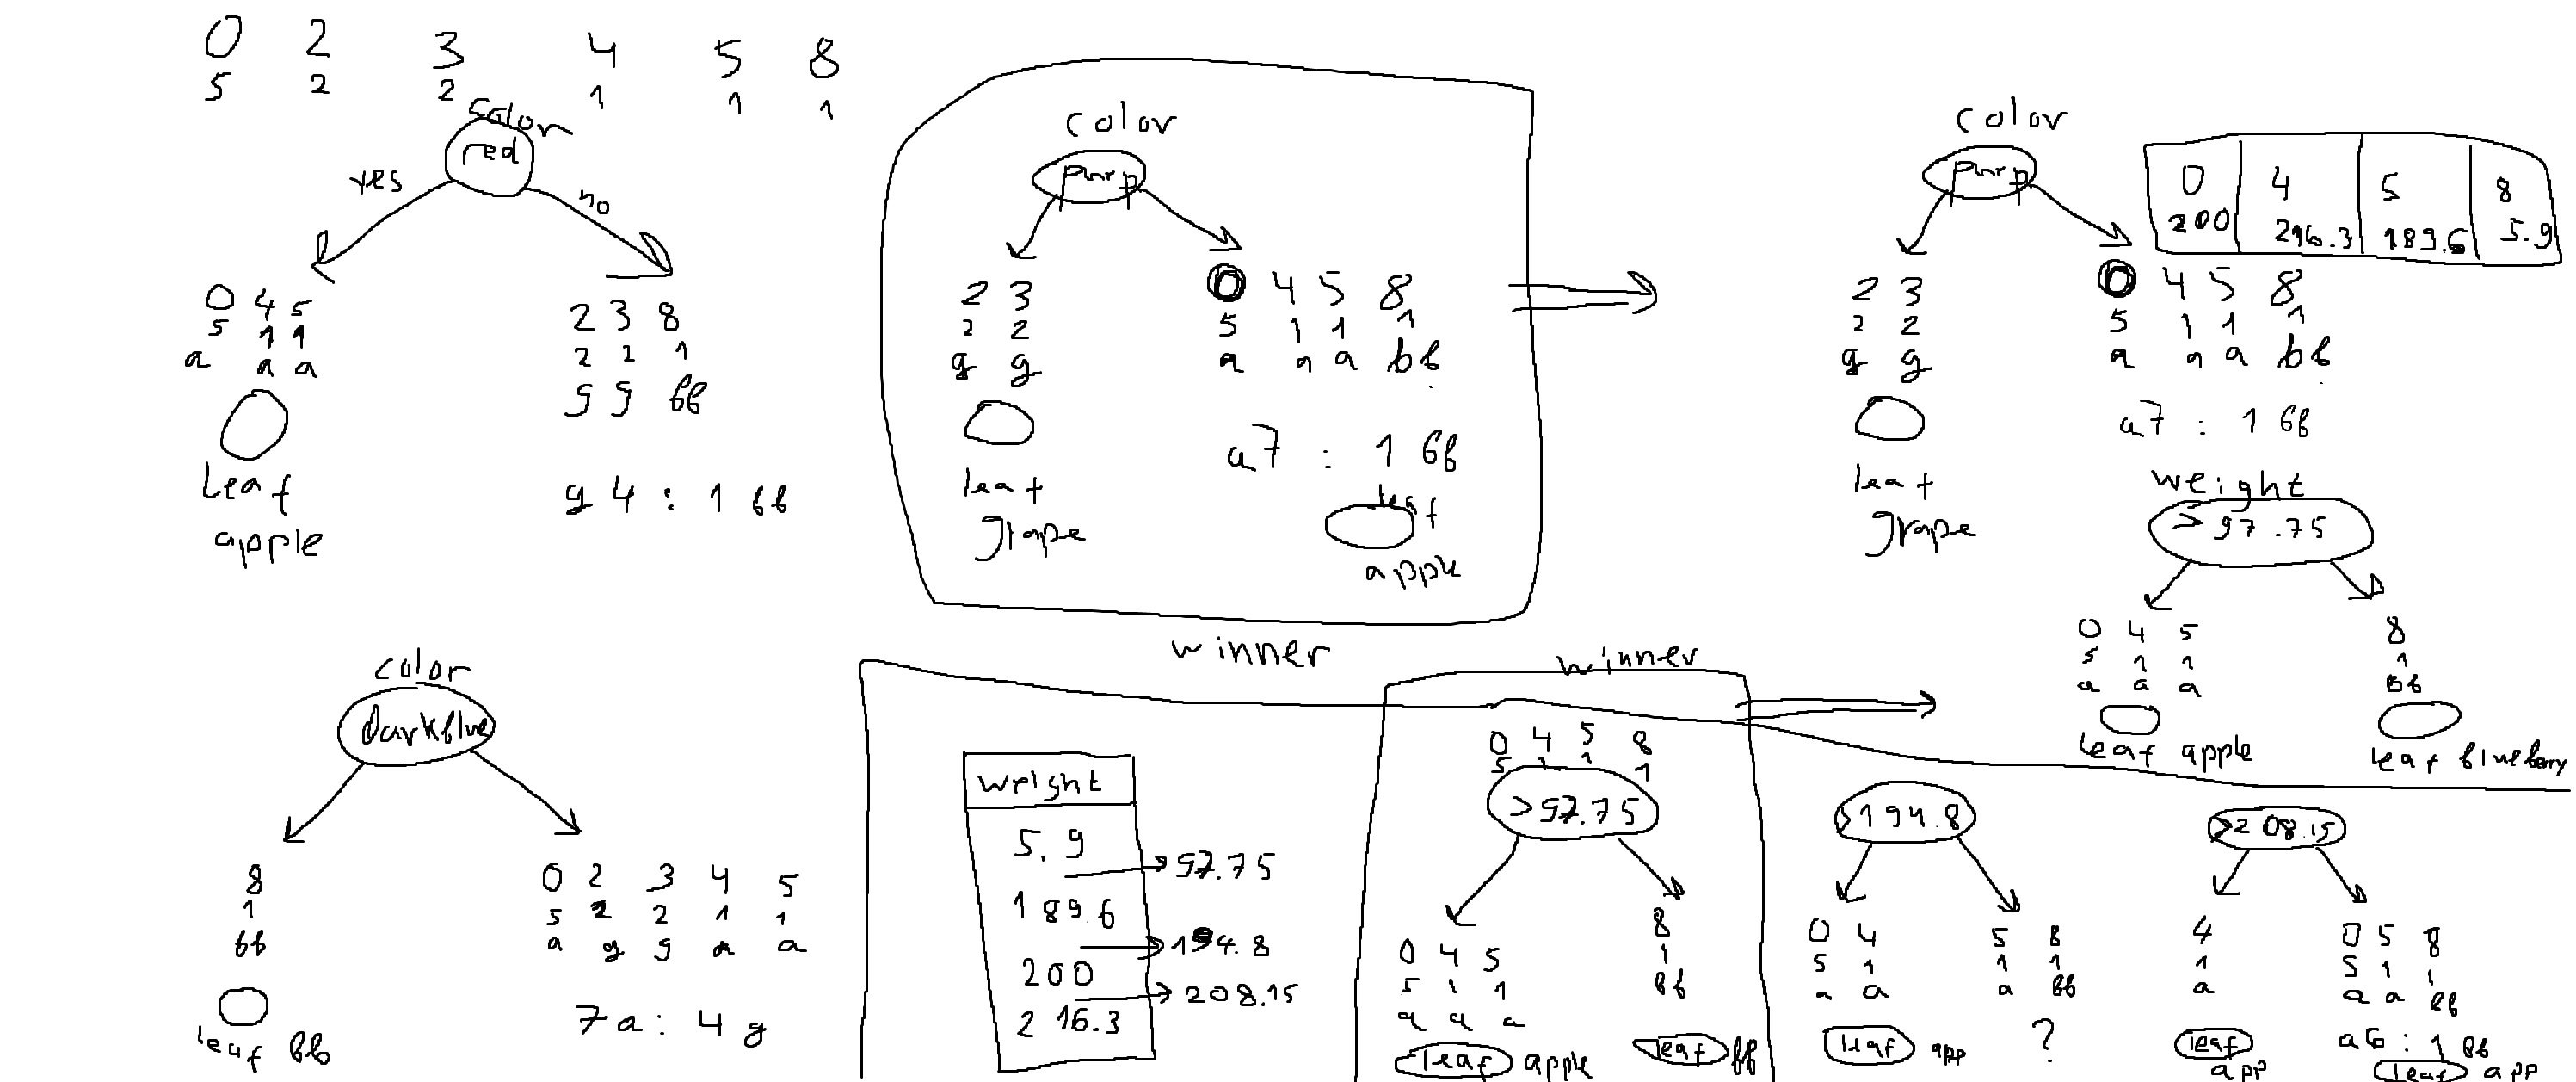 0 2 3 4 5 8
5 2 2 1 1 1
color
red
yes no
0 4 5
5 1 1
a a a
leaf
apple
2 3 8
2 2 1
g g bb
g 4 : 1 bb
color
purp
2 3
2 2
g g
leaf
grape
0 4 5 8
5 1 1 1
a a a bb
a7 : 1 bb
leaf
apple
winner
color
purp
0 4 5 8
200 216.3 189.6 5.9
2 3
2 2
g g
leaf
grape
0 4 5 8
5 1 1 1
a a a bb
a7 : 1 bb
weight
> 97.75
0 4 5
5 1 1
a a a
leaf apple
8
1
bb
leaf blueberry
color
darkblue
8
1
bb
leaf bb
0 2 3 4 5
5 2 2 1 1
a g g a a
7a : 4g
weight
5.9
97.75
189.6
194.8
200
208.15
216.3
winner
0 4 5 8
5 1 1 1
>97.75
0 4 5
5 1 1
a a a
leaf apple
8
1
bb
leaf bb
>194.8
0 4
5 1
a a
leaf app
5 8
1 1
a bb
?
>208.15
4
1
a
leaf
app
0 5 8
5 1 1
a a bb
a6 : 1 bb
leaf app